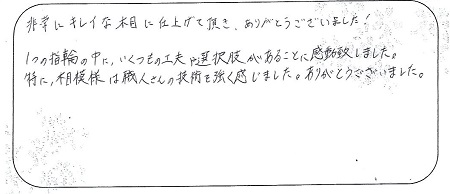 非常にキレイな木目に仕上げて頂き、ありがとうございました！
1つの指輪の中に、いくつもの工夫や選択肢があることに感動致しました。
特に、相模様は職人さんの技術を強く感じました。ありがとうございました。